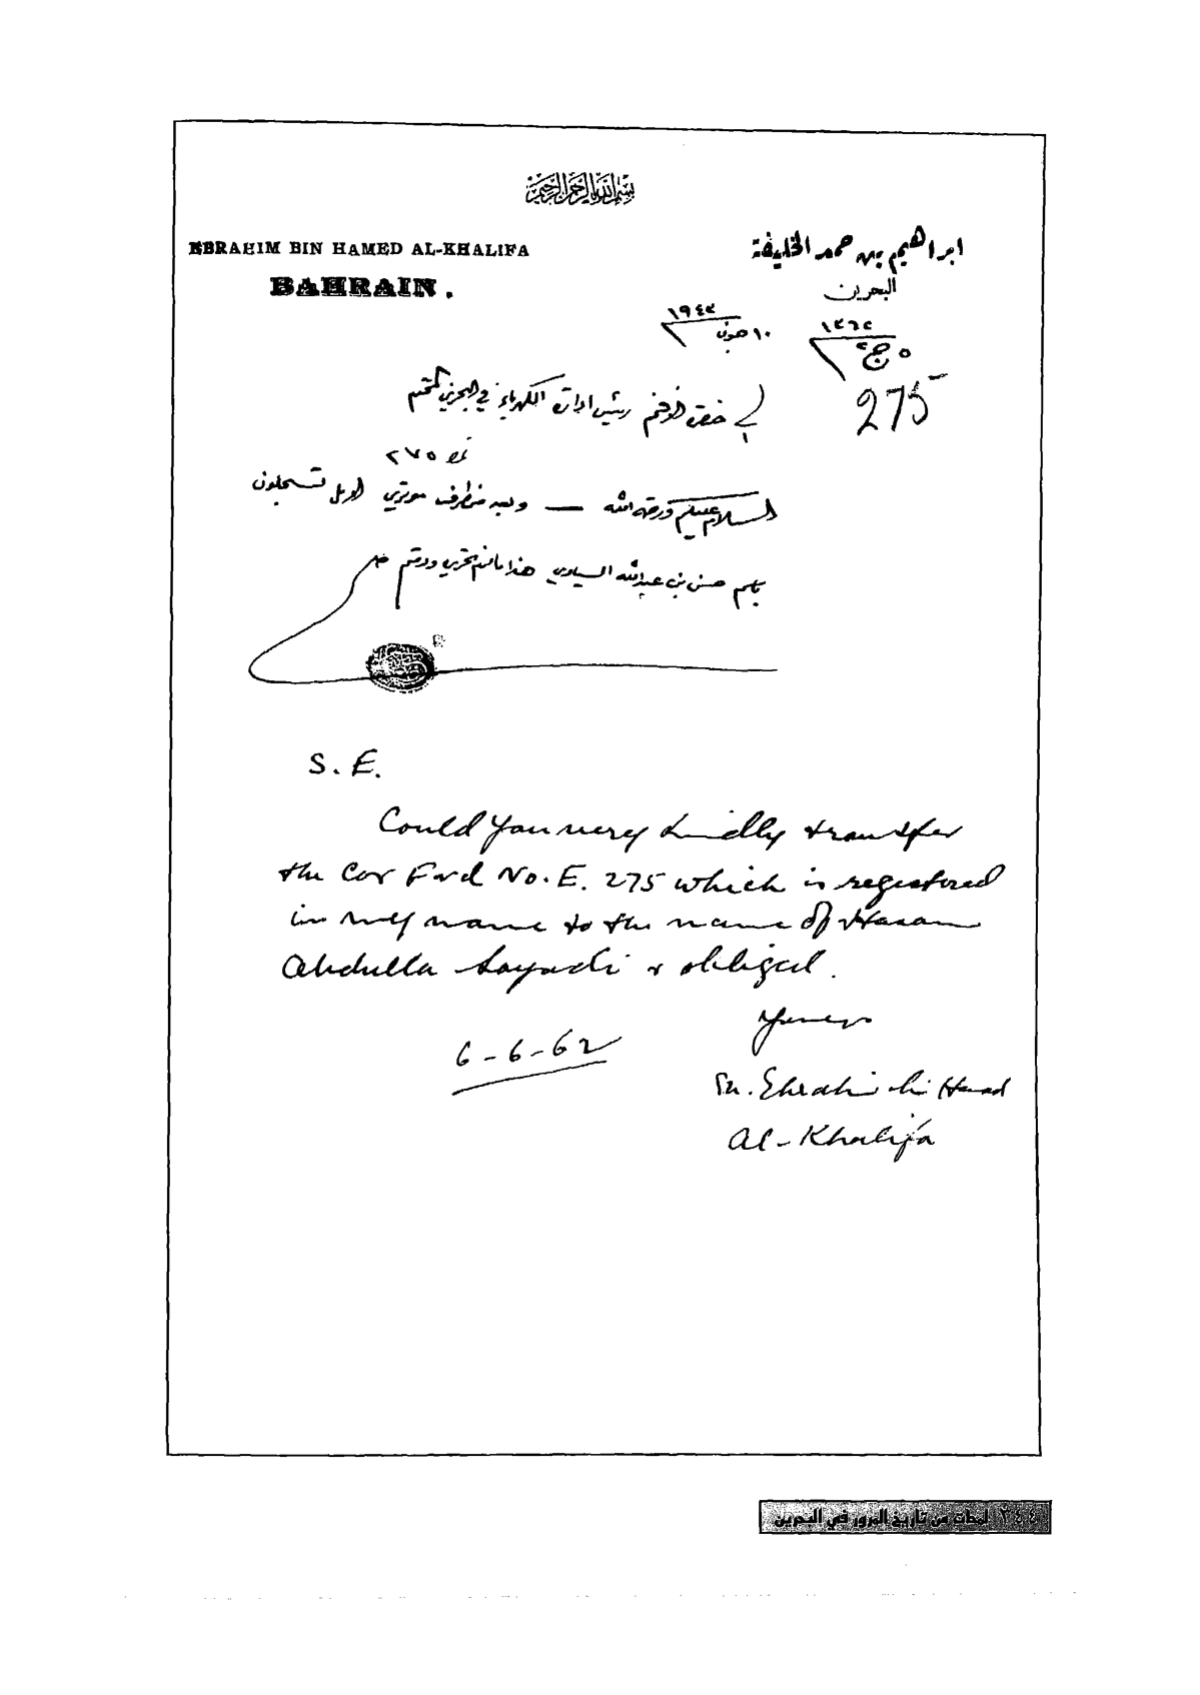 بسم الله الرحمن الرحيم
EBRAHIM BIN HAMED AL-KHALIFA
BAHRAIN.
ابراهيم بن حمد الخليفة
البحرين
١٩٤٣
١٠ جون
١٣٦٢
٥ ج
275
الى رئيس ادارة الكهرباء في البحرين المحترم
٢٧٥
السلام عليكم ورحمة الله — وبعد موتري تسجلون
باسم حسن بن عبدالله السيادي هذا ما لزم تحريره ودمتم
S. E.
Could you very kindly transfer
the Car Ford No. E. 275 which is registered
in my name to the name of Hasan
Abdulla Sayadi & obliged.
Yours
6-6-62
Sh. Ebrahim bin Hamad
Al-Khalifa
٣٤٤ لمحات من تاريخ المرور في البحرين